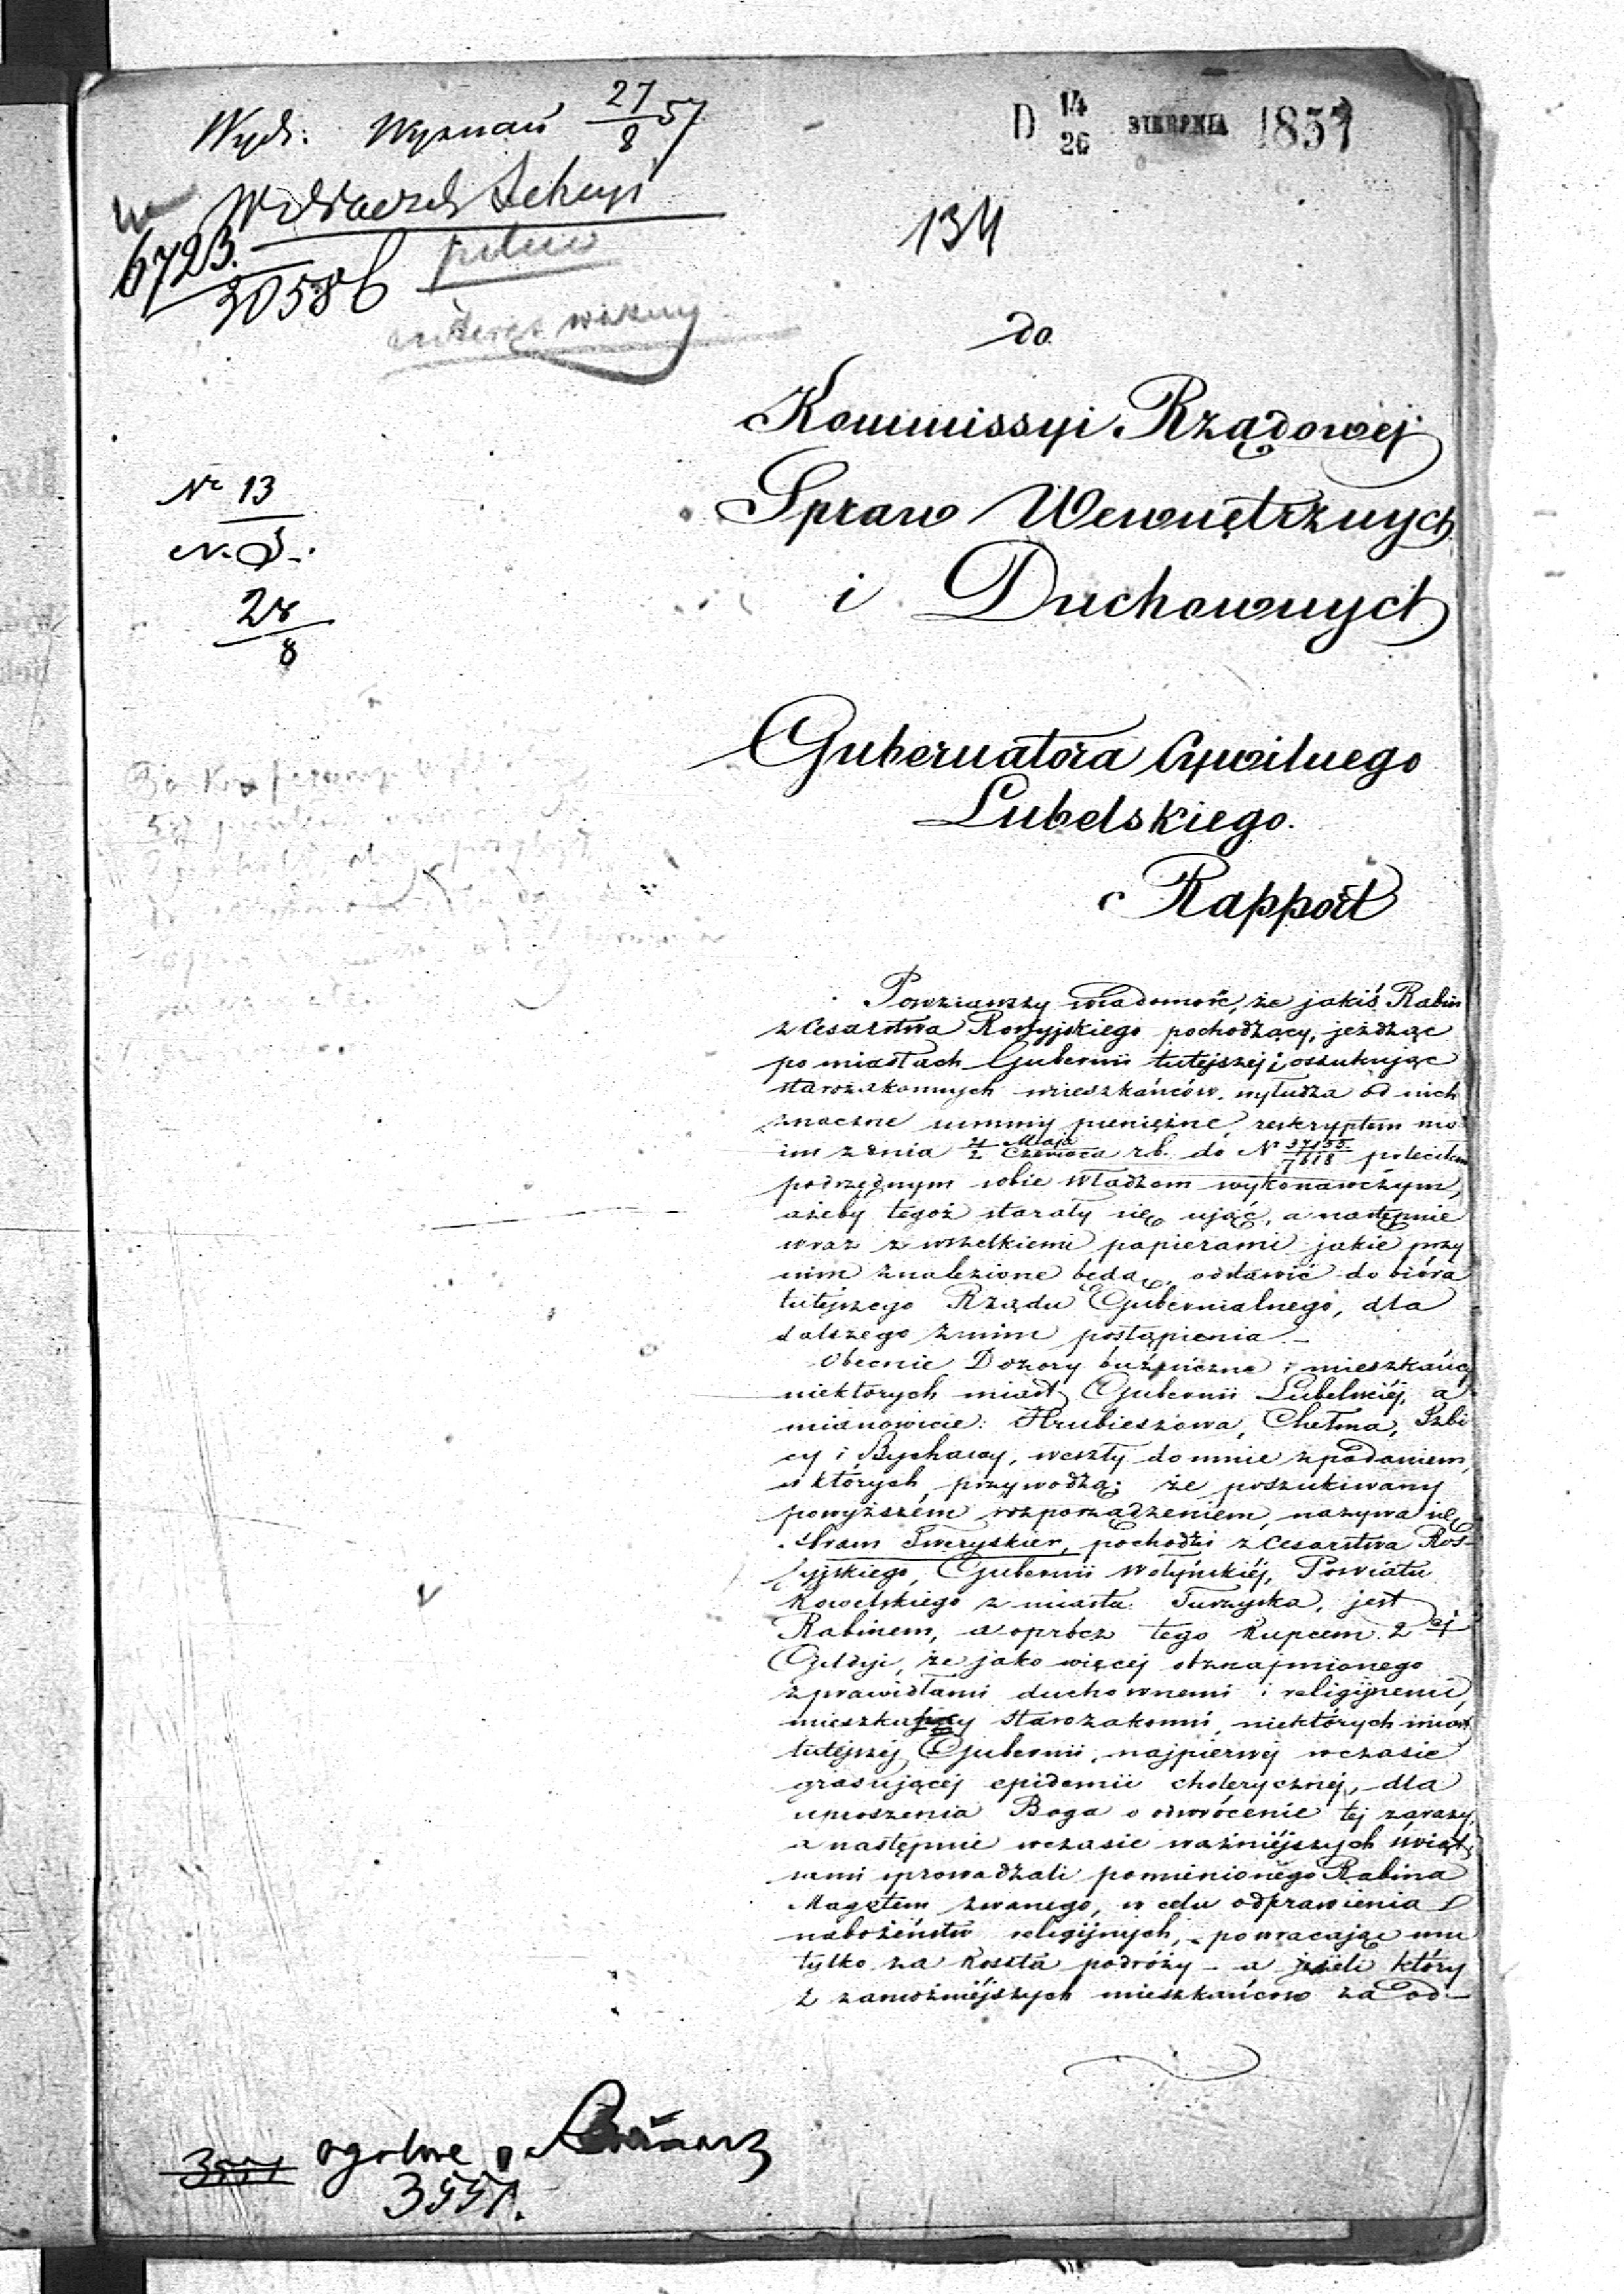 Wydz: Wyznań 27/8 57
D 14/26 SIERPNIA 1857
w Wydziale Sekcyi
6723.
30586
pilne
134
do
Kommissyi Rządowej
Spraw Wewnętrznych
i Duchownych
Nr 13
28
8
Gubernatora Cywilnego
Lubelskiego.
Rapport
Powziąwszy wiadomość, że jakiś Rabin
z Cesarstwa Rossyjskiego pochodzący, jeżdżąc
po miastach Gubernii tutejszej i oszukując
starozakonnych mieszkańców, wyłudza od nich
znaczne summy pieniężne, reskryptem mo
im z dnia 21 Maja / 2 Czerwca r.b. do N 37155/7618 poleciłem
podrzędnym sobie Władzom wykonawczym,
ażeby tegoż starały się ująć, a następnie
wraz z wszelkiemi papierami jakie przy
nim znalezione będą, odstawić do bióra
tutejszego Rządu Gubernialnego, dla
dalszego z nim postąpienia –
Obecnie Dozory bużniczne i mieszkańcy
niektórych miast Gubernii Lubelskiéj, a
mianowicie: Hrubieszowa, Chełma, Izbi
cy i Bychawy, weszły do mnie z podaniem,
w których przywodzą; że poszukiwany
powyższém rozporządzeniem, nazywa się
Abram Tweryskier, pochodzi z Cesarstwa Ros-
syjskiego, Gubernii Wołyńskiéj, Powiatu
Kowelskiego z miasta Turzyska, jest
Rabinem, a oprócz tego Kupcem 2ej
Gildyi, że jako więcej obznajmionego
z prawidłami duchownemi i religijnemi,
mieszkańcy starozakonni, niektórych miast
tutejszej Gubernii, najpierwej w czasie
grasującéj epidemii cholerycznéj, dla
uproszenia Boga o odwrócenie tej zarazy,
a następnie w czasie ważniéjszych świąt,
sami sprowadzali pomienionego Rabina
Magętem zwanego, w celu odprawienia
nabożeństw religijnych, powracając mu
tylko za koszta podróży – a jeżeli który
z zamożniéjszych mieszkańców za od-
3551 ogólne
3551.